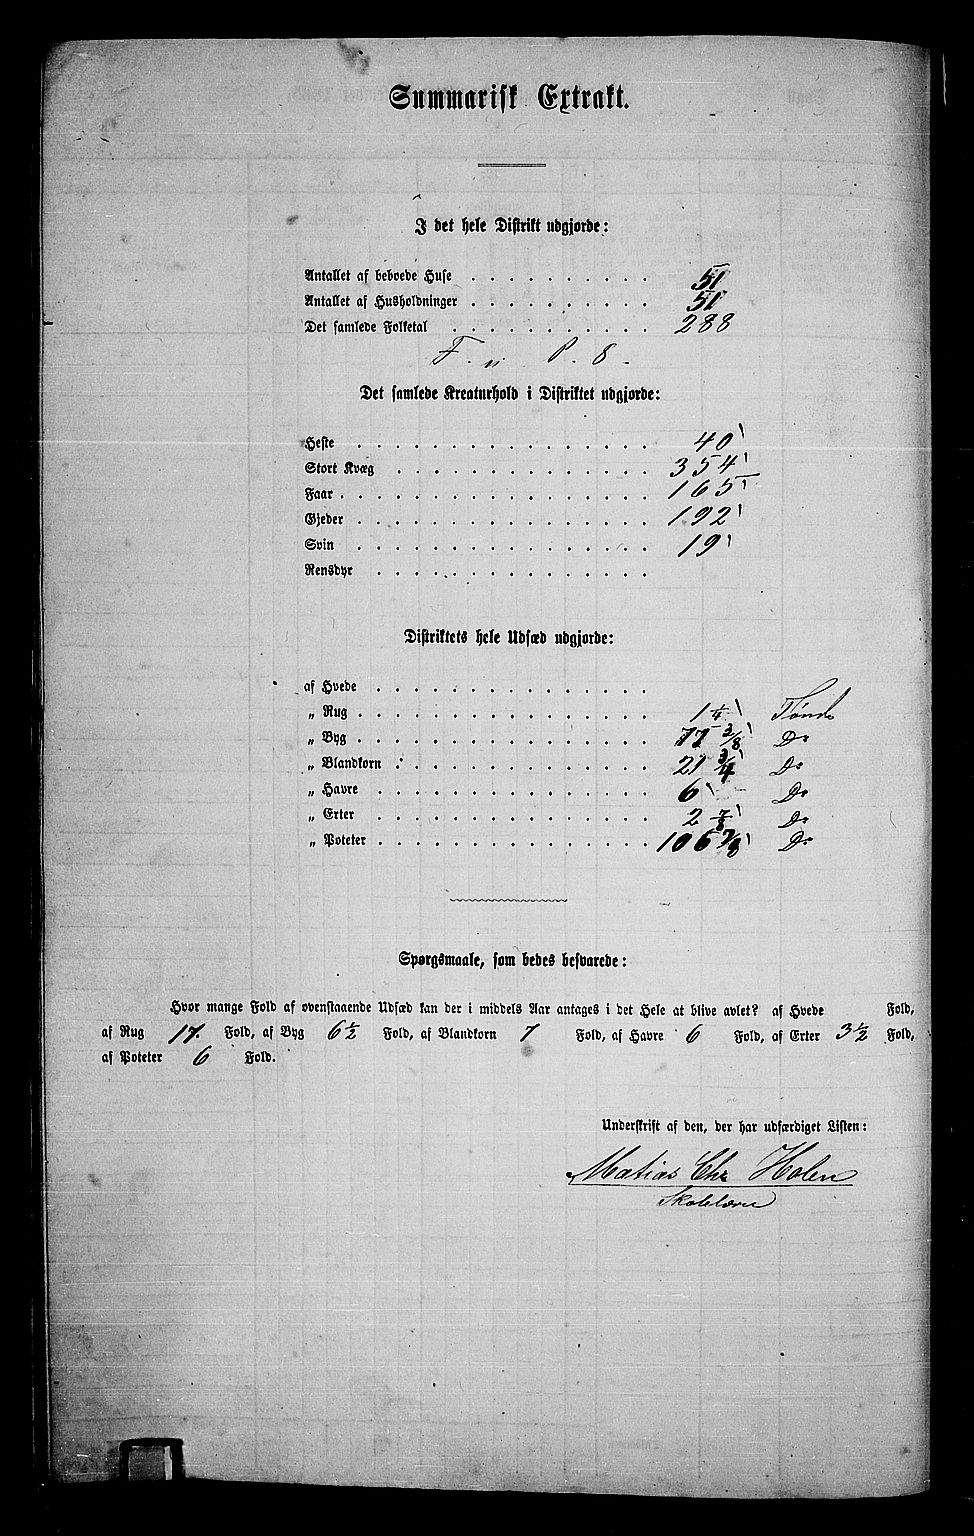 Summarisk Extrakt.
I det hele Distrikt udgjorde:
Antallet af beboede Huse . . . . . . . . 51
Antallet af Husholdninger . . . . . . . . 51
Det samlede Folketal . . . . . . . . . 288
F. " P. 8.
Det samlede Kreaturhold i Distriktet udgjorde:
Heste . . . . . . . . . . . . . . 40
Stort Kvæg . . . . . . . . . . . . 354
Faar . . . . . . . . . . . . . . . 165
Gjeder . . . . . . . . . . . . . . 192
Svin . . . . . . . . . . . . . . 19
Rensdyr . . . . . . . . . . . . .
Distriktets hele Udsæd udgjorde:
af Hvede . . . . . . . . . . . . .
„ Rug . . . . . . . . . . . . . . 1 1/4 Tønde
„ Byg . . . . . . . . . . . . . . 77 3/8 Do
„ Blandkorn . . . . . . . . . . . . 21 3/4 Do
„ Havre . . . . . . . . . . . . . 6 Do
„ Erter . . . . . . . . . . . . . 2 7/8 Do
„ Poteter . . . . . . . . . . . . . 106 7/8 Do
Spørgsmaale, som bedes besvarede:
Hvor mange Fold af ovenstaaende Udsæd kan der i middels Aar antages i det Hele at blive avlet? af Hvede Fold,
af Rug 17. Fold, af Byg 6½ Fold, af Blandkorn 7 Fold, af Havre 6 Fold, af Erter 3½ Fold,
af Poteter 6 Fold.
Underskrift af den, der har udfærdiget Listen:
Matias Chr Holen
Skolelærer